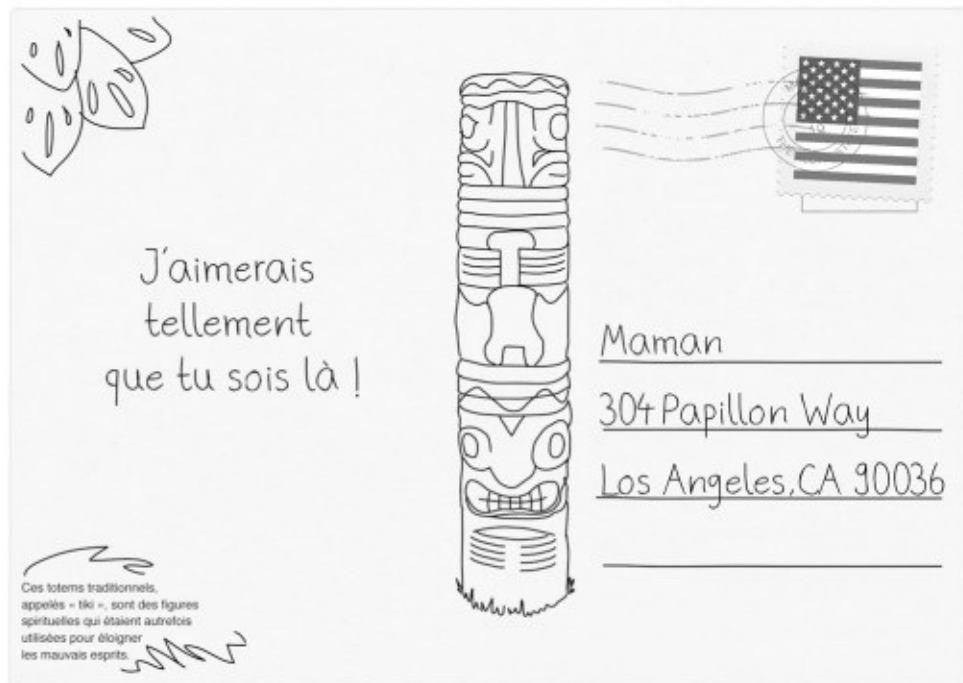 J'aimerais
tellement
que tu sois là !
Maman
304 Papillon Way
Los Angeles, CA 90036
Ces totems traditionnels,
appelés « tiki », sont des figures
spirituelles qui étaient autrefois
utilisées pour éloigner
les mauvais esprits.